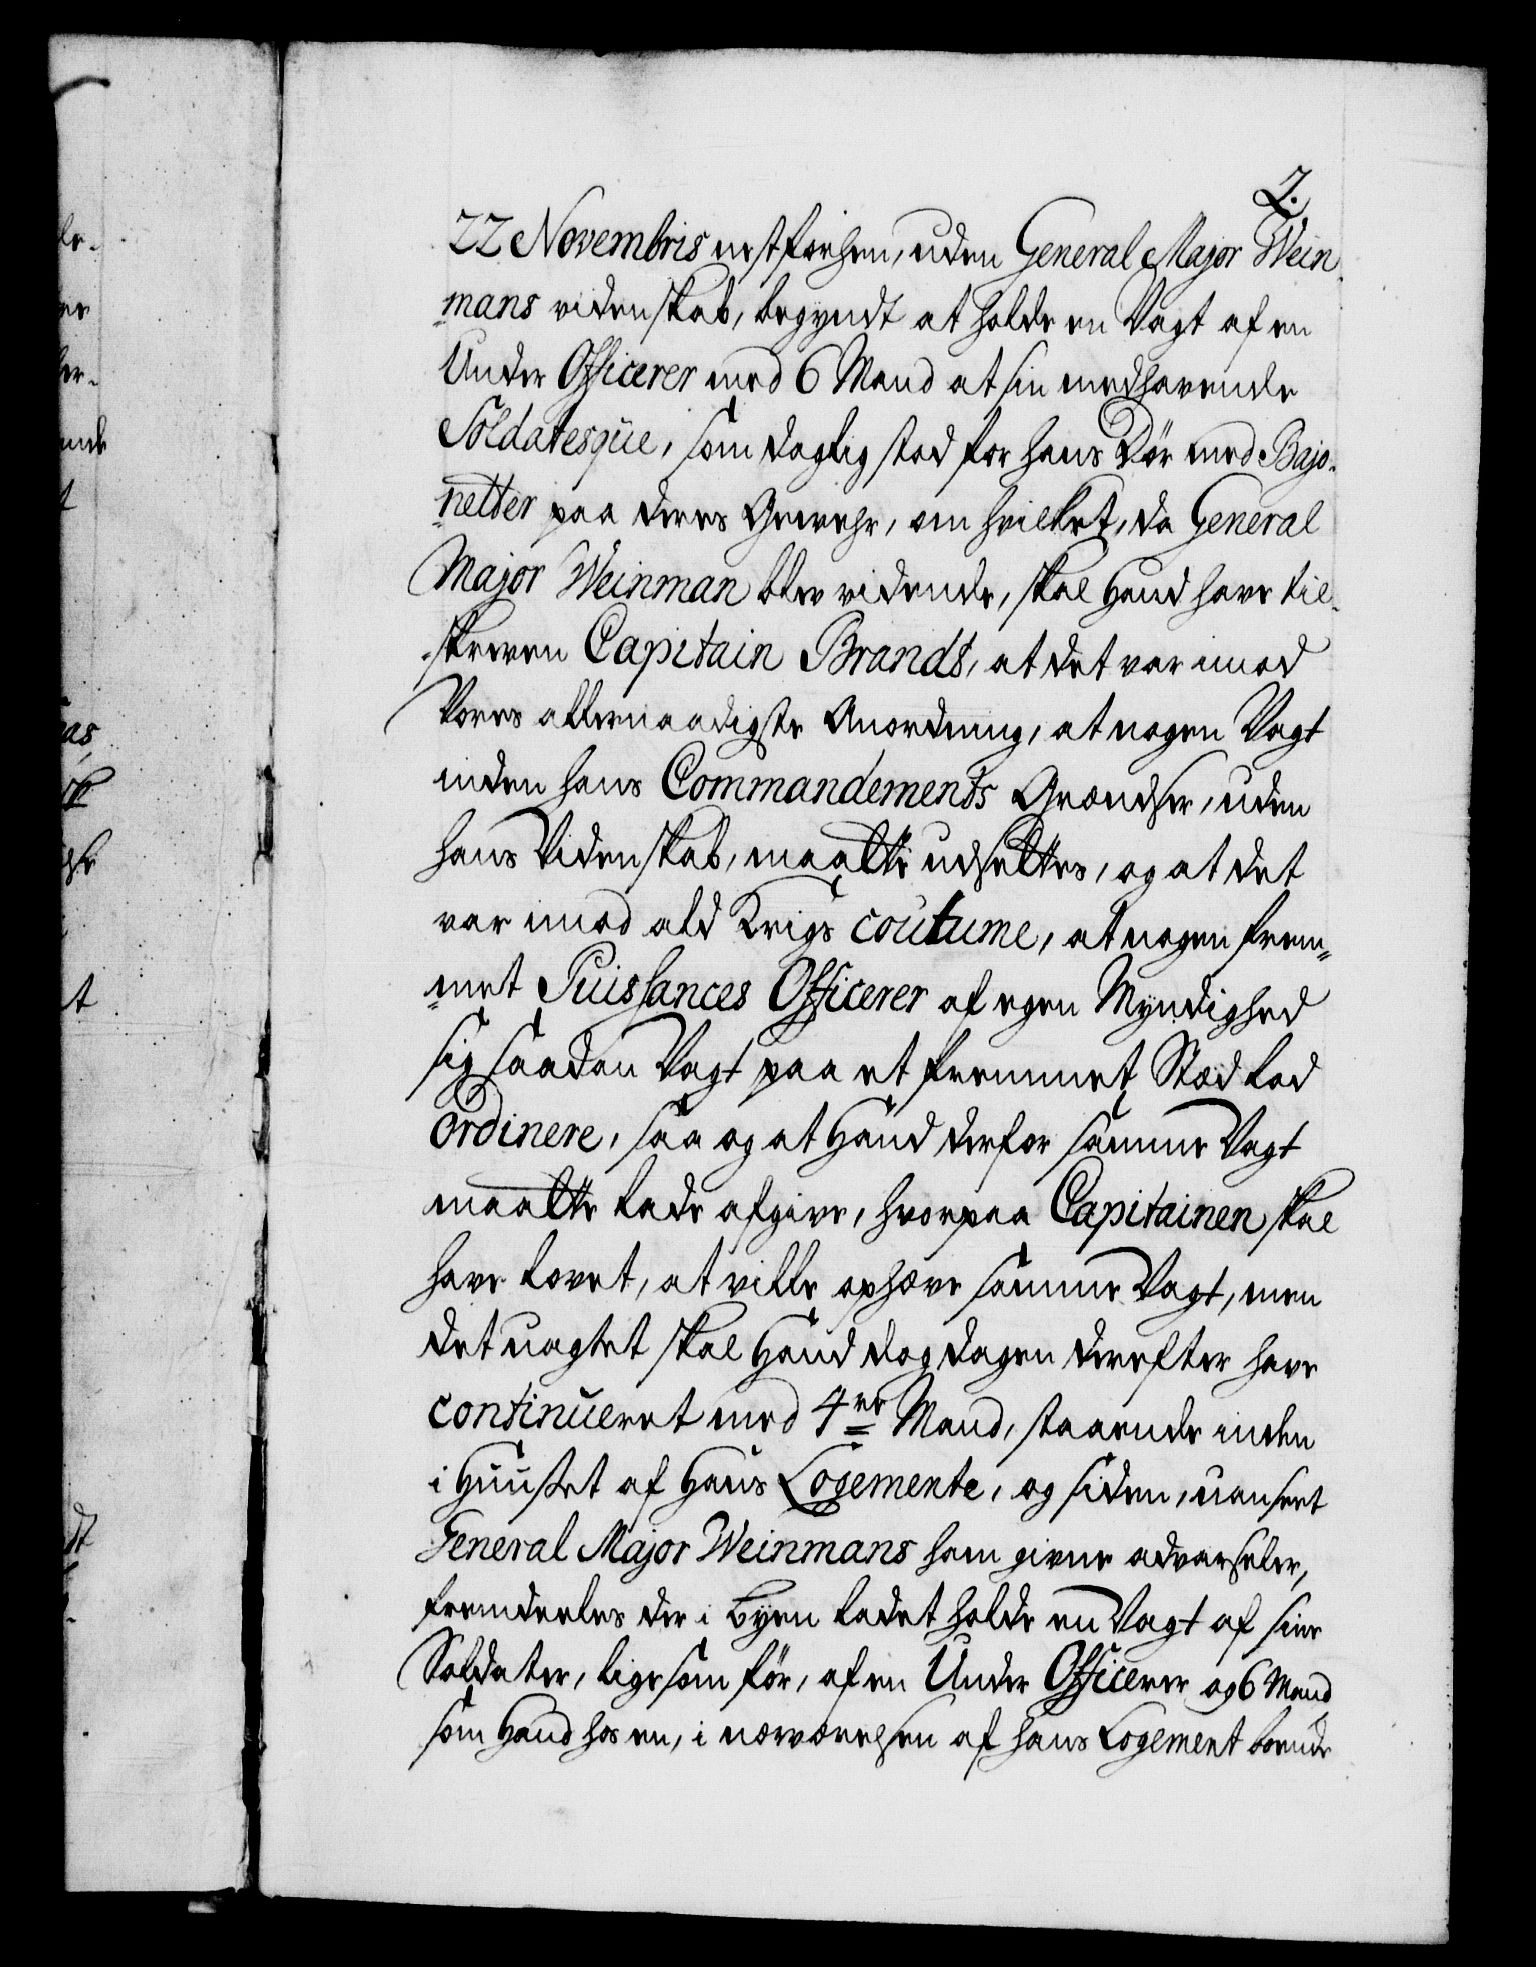 2.
22 Novembris nestforhen, uden General Major Wein-
mans videnskab, begyndt at holde en Vagt af en
Under Officerer med 6 Mand at sin medhavende
Soldatesqve, som daglig stod for hans Dör med Bajo-
netter paa deres Gewehr, om hvilket, da General
Major Weinman blev vidende, skal Hand have til-
skreven Capitain Brandt, at det var imod
Vores allernaadigste Anordning, at nogen Vagt
inden hans Commandements Grændser, uden
hans Videnskab, maatte udsettes, og at det
var imod ald Krigs coutume, at nogen frem-
met Puissances Officerer af egen Myndighed
sig saadan Vagt paa et fremmet Stæd lod
ordinere, saa og at Hand derfor samme Vagt
maatte lade afgive, hvorpaa Capitainen skal
have lovet, at ville ophæve samme Vagt, men
det uagtet skal Hand dog dagen derefter have
continueret med 4re Mand, staaende inden
i Huuset af Hans Logemente, og siden, uanseet
General Major Weinmans ham givne advarseler,
fremdeeles der i Byen ladet holde en Vagt af sine
Soldater, ligesom för, af en Under Officerer og 6 Mand
som Hand hos en, i nærværelsen af hans Logement boende